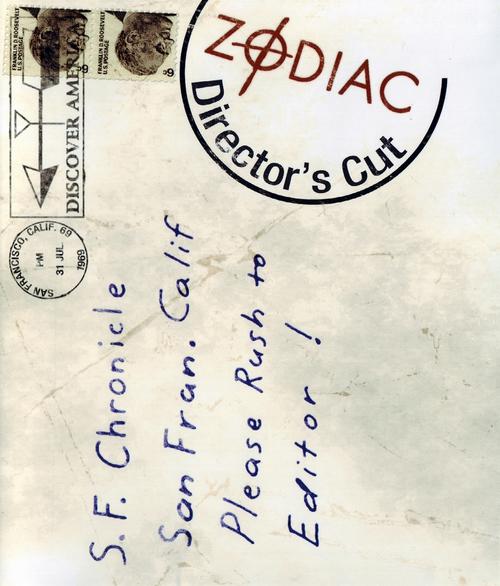 ZODIAC
Director's Cut
FRANKLIN D. ROOSEVELT
U.S. POSTAGE
6¢
FRANKLIN D. ROOSEVELT
U.S. POSTAGE
6¢
DISCOVER AMERICA
SAN FRANCISCO, CALIF. 69
PM
31 JUL
1969
S.F. Chronicle
San Fran. Calif
Please Rush to
Editor !